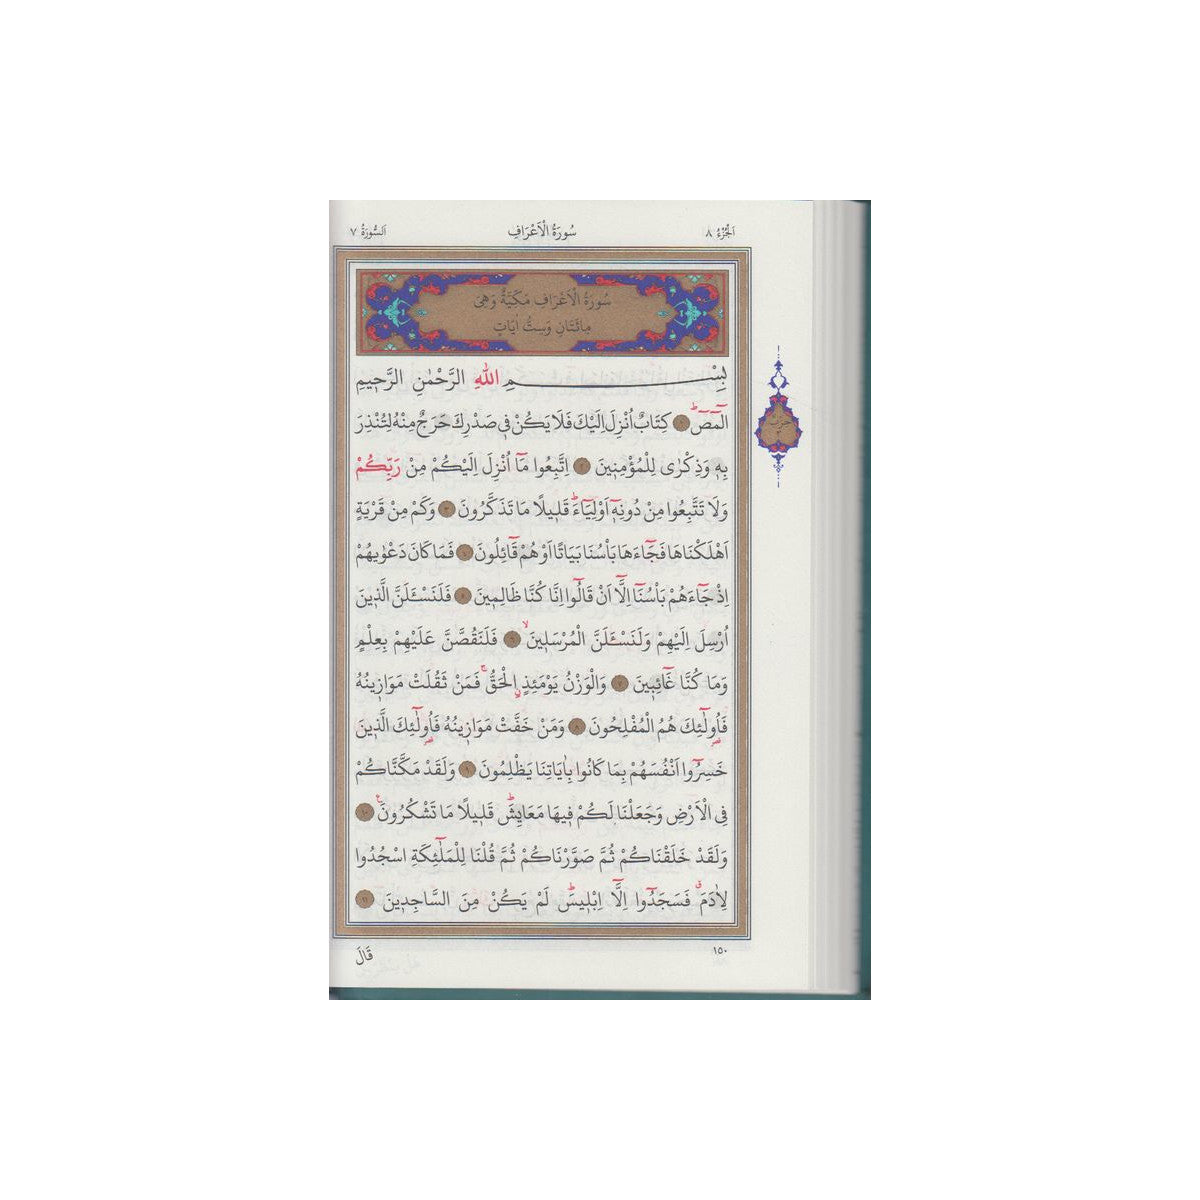 اَلْجُزْءُ ٨ سُورَةُ الْاَعْرَافِ اَلسُّورَةُ ٧
سُورَةُ الْاَعْرَافِ مَكِّيَّةٌ وَهِيَ
مِائَتَانِ وَسِتُّ اٰيَاتٍ
بِسْمِ اللّٰهِ الرَّحْمٰنِ الرَّحِيمِ
الٓمٓصٓ ۚ ١ كِتَابٌ اُنْزِلَ اِلَيْكَ فَلَا يَكُنْ فِي صَدْرِكَ حَرَجٌ مِنْهُ لِتُنْذِرَ
بِهِ وَذِكْرٰى لِلْمُؤْمِنِينَ ٢ اِتَّبِعُوا مَٓا اُنْزِلَ اِلَيْكُمْ مِنْ رَبِّكُمْ
وَلَا تَتَّبِعُوا مِنْ دُونِهِٓ اَوْلِيَٓاءَ ۜ قَلِيلًا مَا تَذَكَّرُونَ ٣ وَكَمْ مِنْ قَرْيَةٍ
اَهْلَكْنَاهَا فَجَٓاءَهَا بَأْسُنَا بَيَاتًا اَوْ هُمْ قَٓائِلُونَ ٤ فَمَا كَانَ دَعْوٰيهُمْ
اِذْ جَٓاءَهُمْ بَأْسُنَٓا اِلَّٓا اَنْ قَالُٓوا اِنَّا كُنَّا ظَالِمِينَ ٥ فَلَنَسْـَٔلَنَّ الَّذِينَ
اُرْسِلَ اِلَيْهِمْ وَلَنَسْـَٔلَنَّ الْمُرْسَلِينَ ۙ ٦ فَلَنَقُصَّنَّ عَلَيْهِمْ بِعِلْمٍ
وَمَا كُنَّا غَٓائِبِينَ ٧ وَالْوَزْنُ يَوْمَئِذٍ اِلْحَقُّ ۚ فَمَنْ ثَقُلَتْ مَوَازِينُهُ
فَاُولٰٓئِكَ هُمُ الْمُفْلِحُونَ ٨ وَمَنْ خَفَّتْ مَوَازِينُهُ فَاُولٰٓئِكَ الَّذِينَ
خَسِرُٓوا اَنْفُسَهُمْ بِمَا كَانُوا بِاٰيَاتِنَا يَظْلِمُونَ ٩ وَلَقَدْ مَكَّنَّاكُمْ
فِي الْاَرْضِ وَجَعَلْنَا لَكُمْ فِيهَا مَعَايِشَ ۜ قَلِيلًا مَا تَشْكُرُونَ ۟ ١٠
وَلَقَدْ خَلَقْنَاكُمْ ثُمَّ صَوَّرْنَاكُمْ ثُمَّ قُلْنَا لِلْمَلٰٓئِكَةِ اسْجُدُوا
لِاٰدَمَ ۗ فَسَجَدُٓوا اِلَّٓا اِبْلِيسَ ۜ لَمْ يَكُنْ مِنَ السَّاجِدِينَ ١١
١٥٠
قَالَ